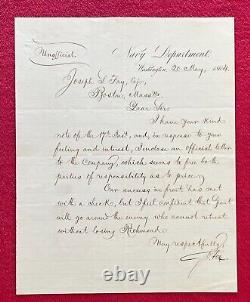 Unofficial.
Navy Department,
Washington, 20 May, 1864
Joseph S. Fay, Esq,
Boston, Mass
Dear Sir
I have your kind
note of the 17th Inst, and, in response to your
feeling and interest, I enclose an official letter
to the Company, which seems to free to the
parties of responsibility as to price.
Our success in front has met
with a check, but I feel confident that Grant
will go around the enemy who cannot retreat
without losing Richmond.
Very respectfully